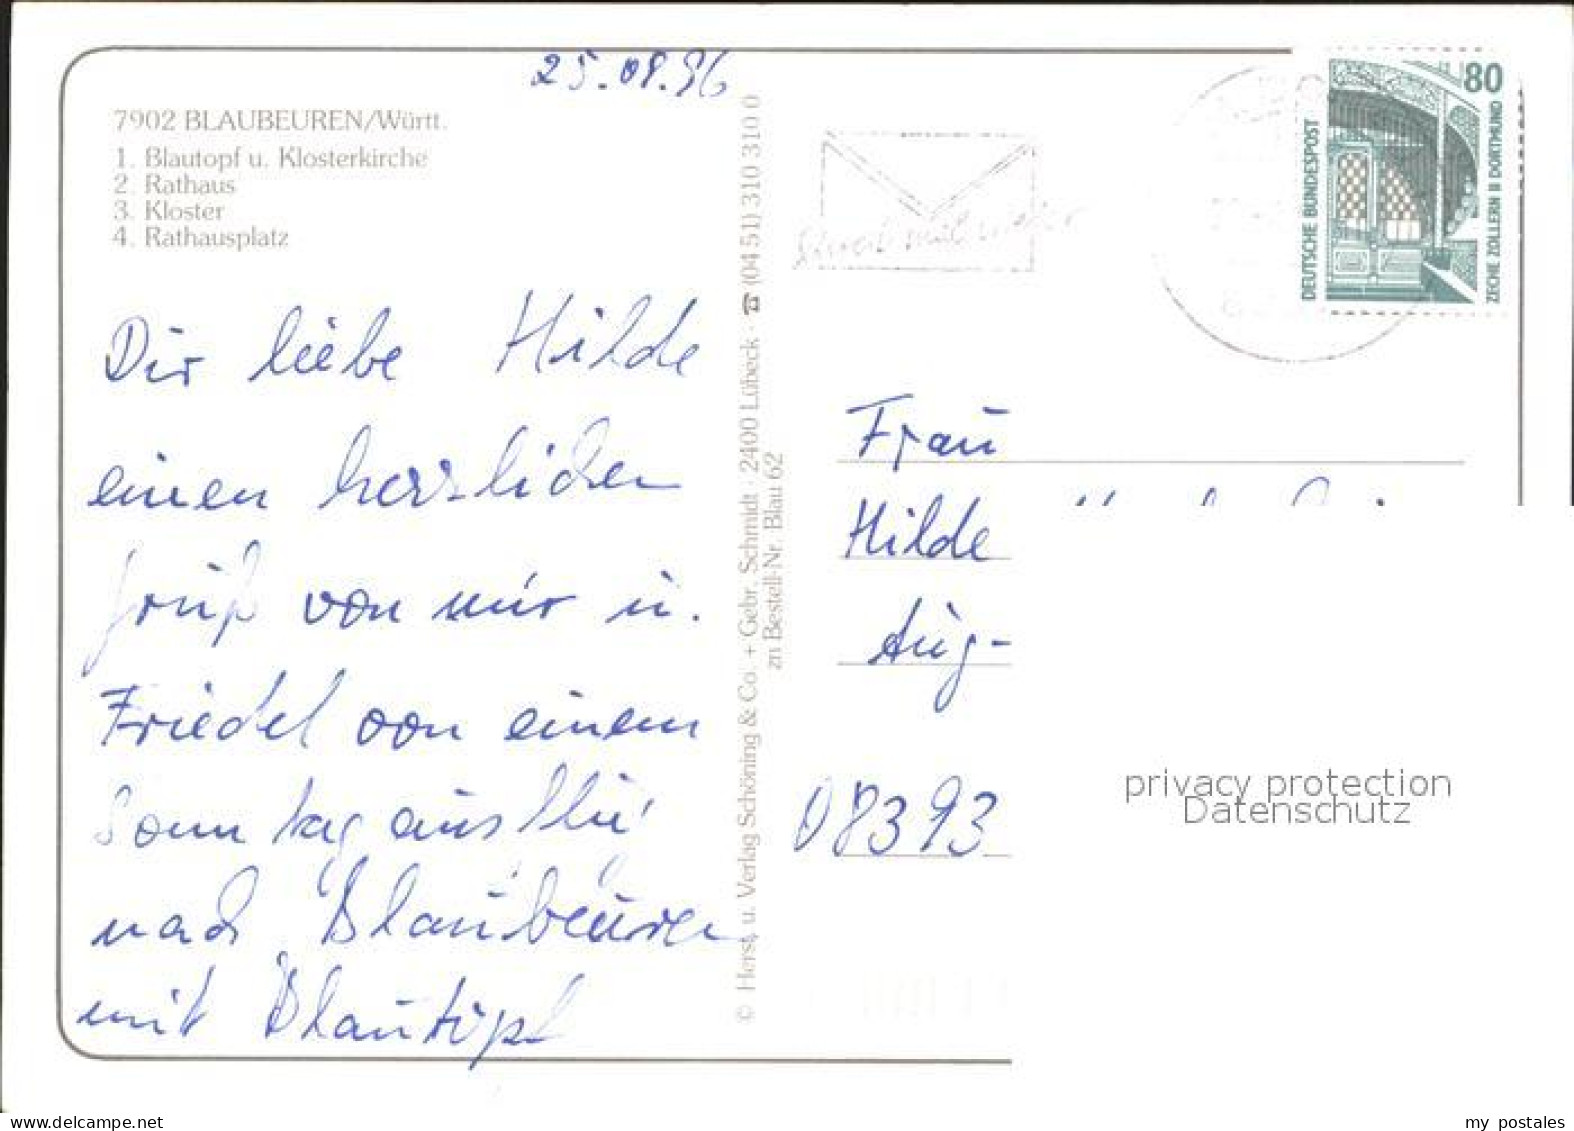 25.08.96
7902 BLAUBEUREN/Württ.
1. Blautopf u. Klosterkirche
2. Rathaus
3. Kloster
4. Rathausplatz
Dir liebe Hilde
einen herzlichen
Gruß von mir u.
Friedel von einem
Sonntagausflu
nach Blaubeuren
mit Blautopf
© Herst. u. Verlag Schöning & Co. + Gebr. Schmidt · 2400 Lübeck · ☎ (04 51) 310 310 0
zn Bestell-Nr. Blau 62
Schreib mal wieder
80
DEUTSCHE BUNDESPOST
ZECHE ZOLLERN II DORTMUND
Frau
Hilde
Aug-
08393
privacy protection
Datenschutz
my postales